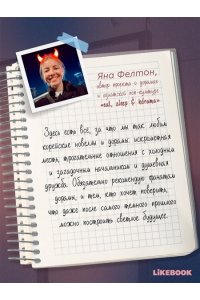 Яна Фелтон,
автор проекта о дорамах
и азиатской поп-культуре
«eat, sleep & dorama»
Здесь есть всё, за что мы так любим
корейские новеллы и дорамы: искромётная
месть, трогательные отношения с холодным
и загадочным начальником и душевная
дружба. Обязательно рекомендую фанатам
дорам, и тем, кто хочет поверить,
что даже после самого тёмного прошлого
можно построить светлое будущее.
LIKEBOOK